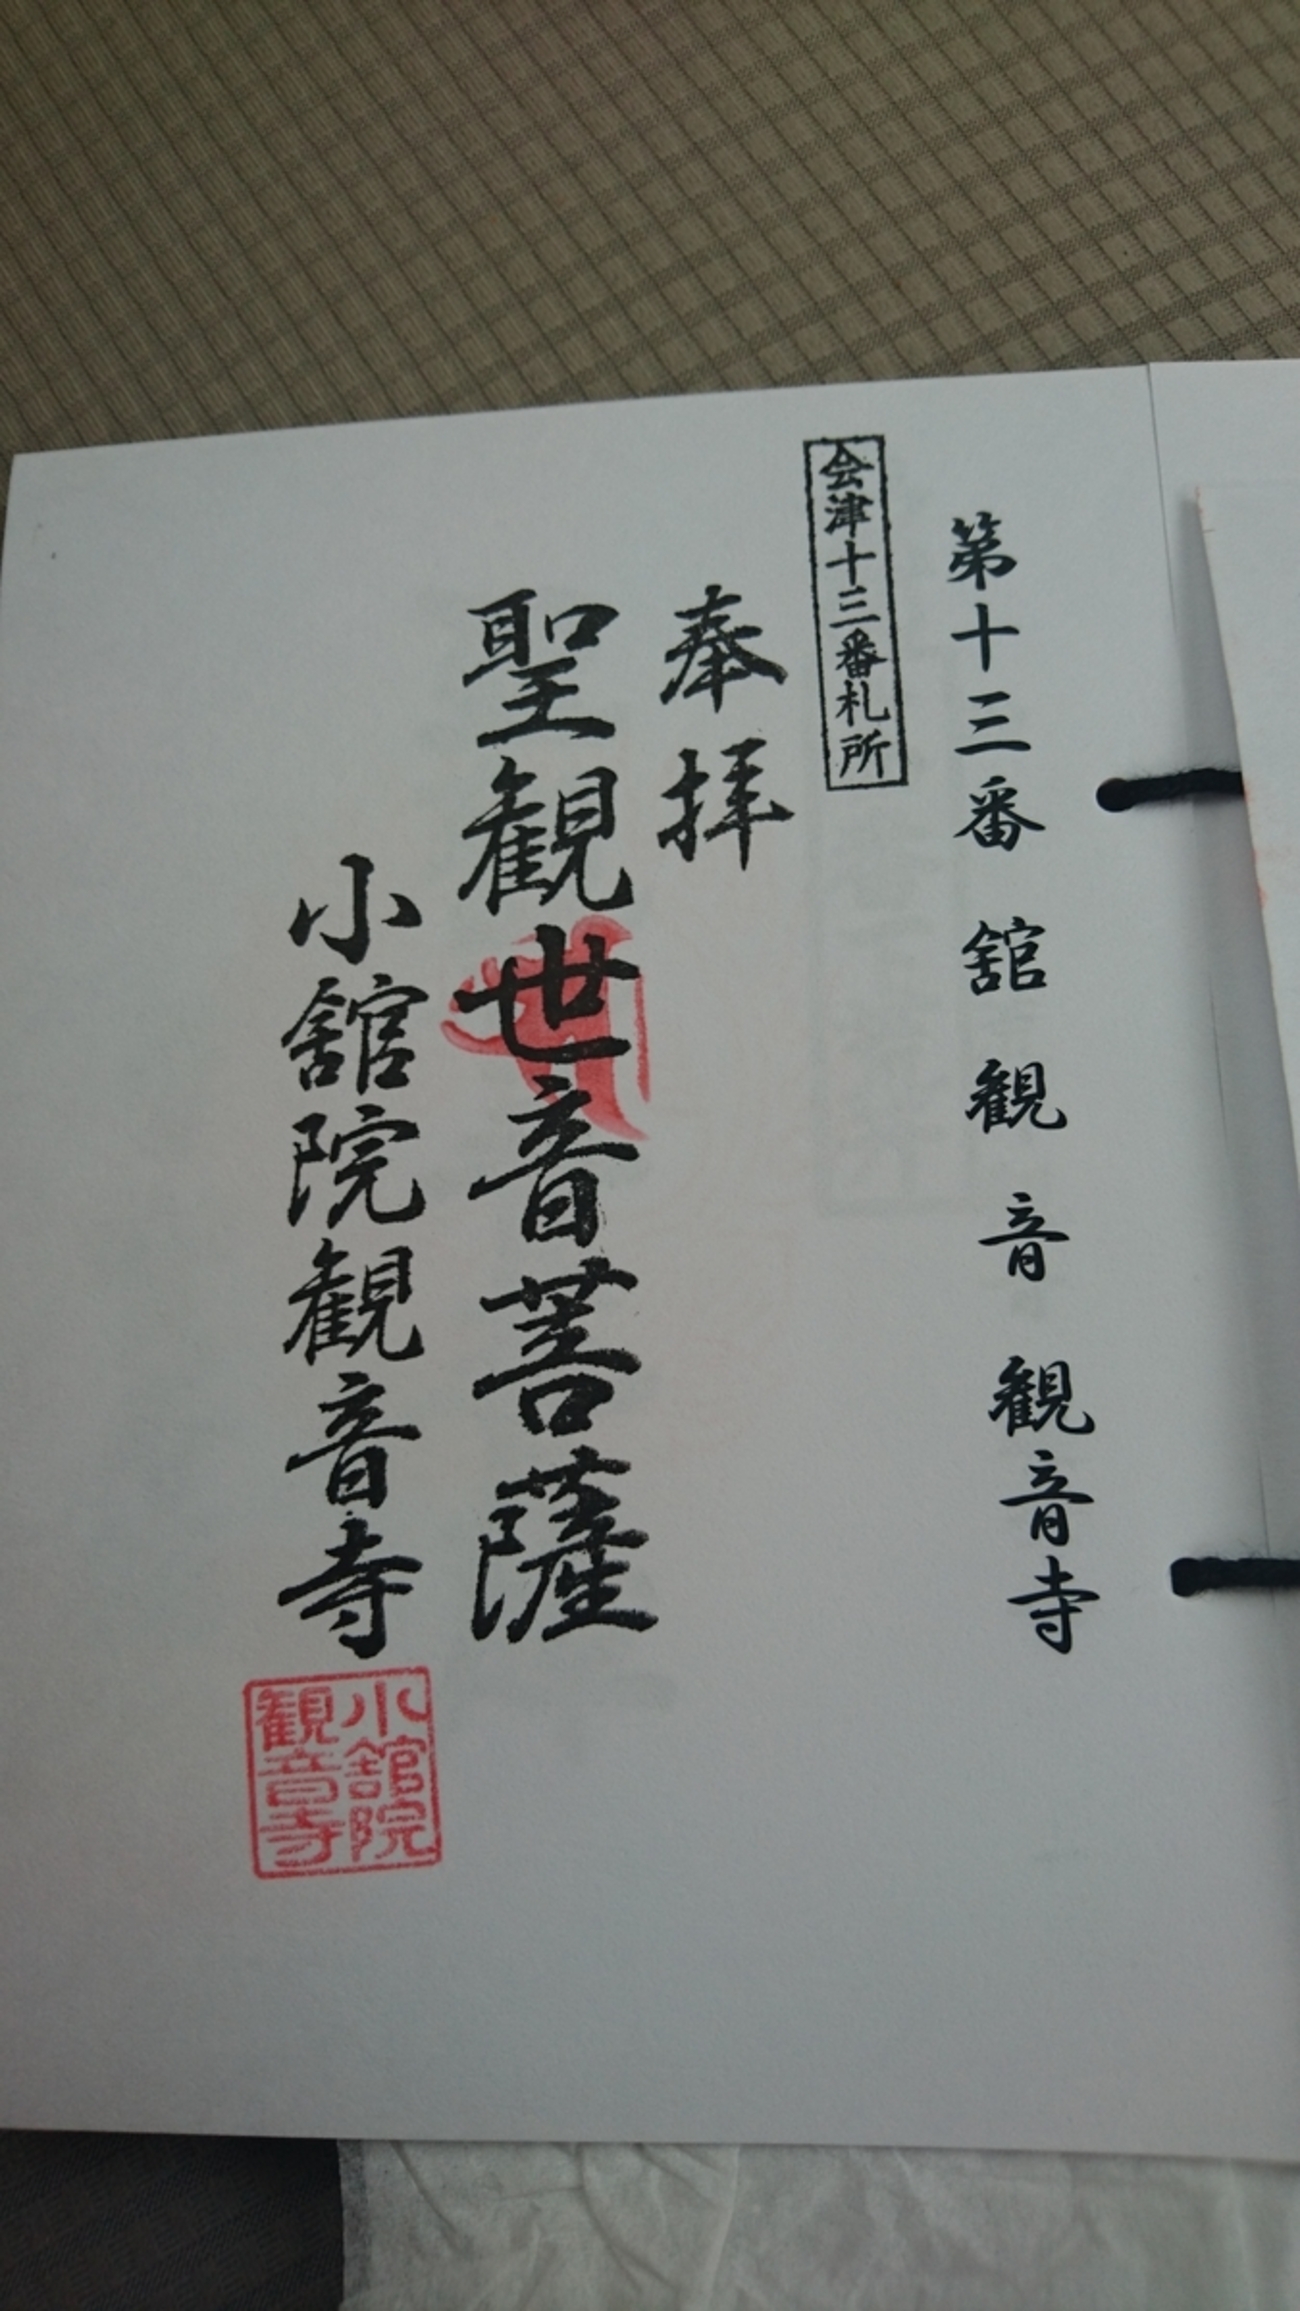 第十三番 舘観音 観音寺
会津十三番札所
奉拝
聖観世音菩薩
小舘院観音寺
小舘院
観音寺